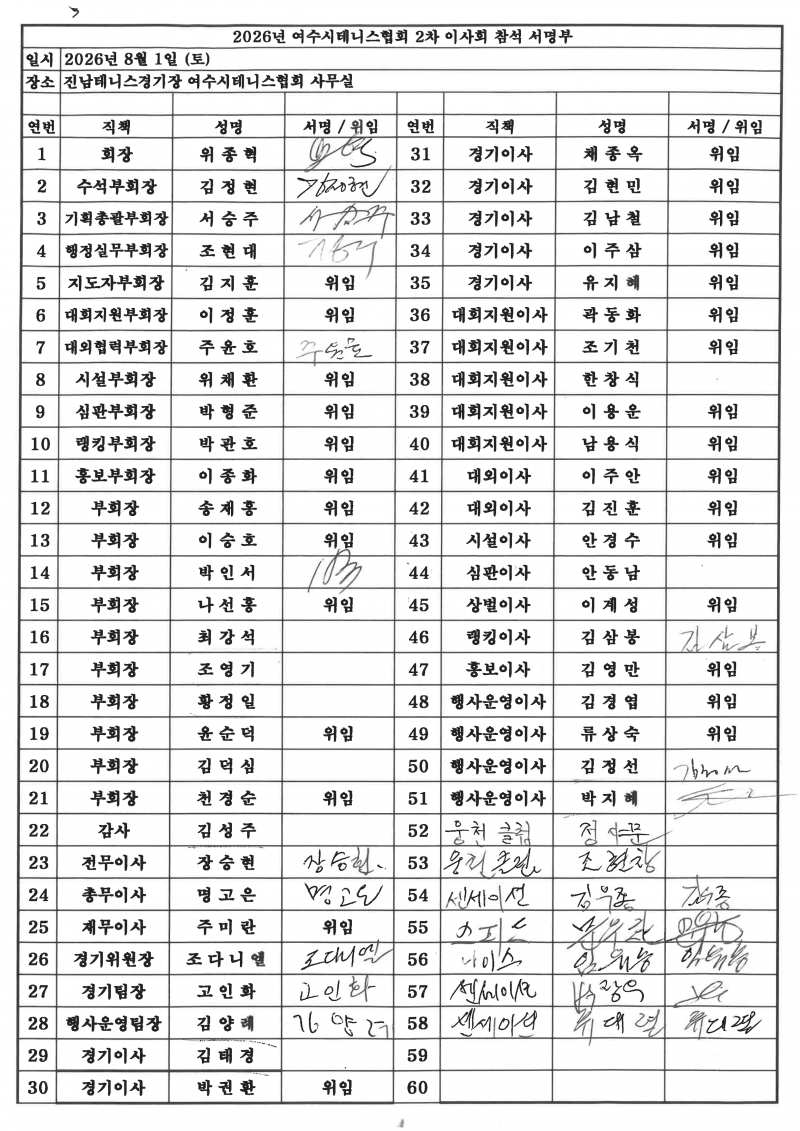 2026년 여수시테니스협회 2차 이사회 참석 서명부
일시 2026년 8월 1일 (토)
장소 진남테니스경기장 여수시테니스협회 사무실
연번 직책 성명 서명 / 위임 연번 직책 성명 서명 / 위임
1 회장 위종혁 31 경기이사 채종옥 위임
2 수석부회장 김정현 김정현 32 경기이사 김현민 위임
3 기획총괄부회장 서승주 33 경기이사 김남철 위임
4 행정실무부회장 조현대 34 경기이사 이주삼 위임
5 지도자부회장 김지훈 위임 35 경기이사 유지혜 위임
6 대회지원부회장 이정훈 위임 36 대회지원이사 곽동화 위임
7 대외협력부회장 주윤호 37 대회지원이사 조기천 위임
8 시설부회장 위채환 위임 38 대회지원이사 한창식
9 심판부회장 박형준 위임 39 대회지원이사 이용운 위임
10 랭킹부회장 박관호 위임 40 대회지원이사 남용식 위임
11 홍보부회장 이종화 위임 41 대외이사 이주안 위임
12 부회장 송재홍 위임 42 대외이사 김진훈 위임
13 부회장 이승호 위임 43 시설이사 안경수 위임
14 부회장 박인서 44 심판이사 안동남
15 부회장 나선홍 위임 45 상벌이사 이계성 위임
16 부회장 최강석 46 랭킹이사 김삼봉 김삼봉
17 부회장 조영기 47 홍보이사 김영만 위임
18 부회장 황정일 48 행사운영이사 김경엽 위임
19 부회장 윤순덕 위임 49 행사운영이사 류상숙 위임
20 부회장 김덕심 50 행사운영이사 김정선
21 부회장 천경순 위임 51 행사운영이사 박지혜
22 감사 김성주 52 웅천 클럽
23 전무이사 장승현 장승현 53 조현창
24 총무이사 명고은 명고은 54 센세이션 김우종 김우종
25 재무이사 주미란 위임 55 스피드
26 경기위원장 조다니엘 조다니엘 56 나이스
27 경기팀장 고인화 고인화 57 센세이션 박광욱
28 행사운영팀장 김양례 김양례 58 센세이션 류대열 류대열
29 경기이사 김태경 59
30 경기이사 박권환 위임 60